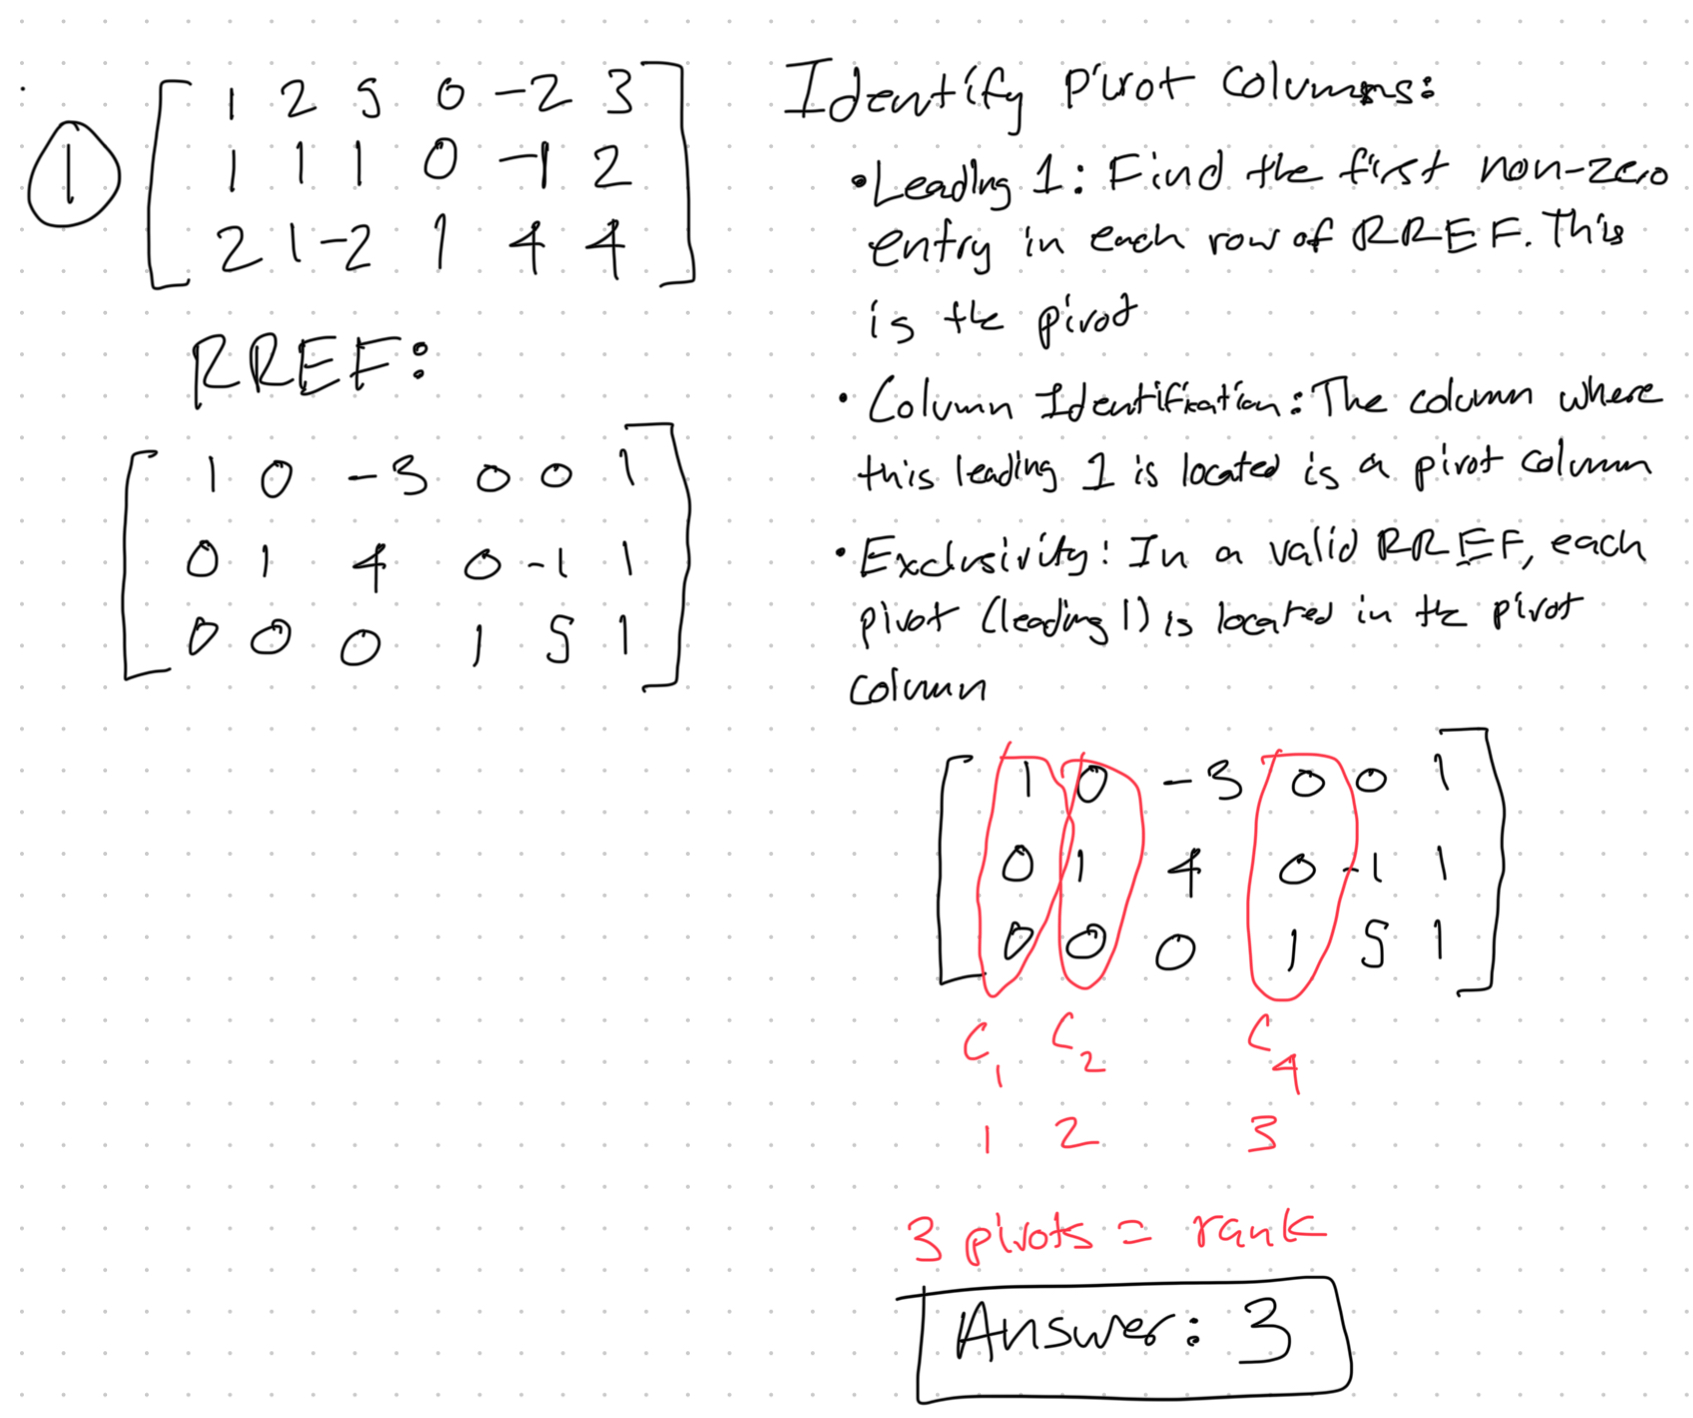 ①
1 2 5 0 -2 3
1 1 1 0 -1 2
2 1 -2 1 4 4
RREF:
1 0 -3 0 0 1
0 1 4 0 -1 1
0 0 0 1 5 1
Identify pivot columns:
• Leading 1: Find the first non-zero
entry in each row of RREF. This
is the pivot
• Column Identification: The column where
this leading 1 is located is a pivot column
• Exclusivity: In a valid RREF, each
pivot (leading 1) is located in the pivot
column
1 0 -3 0 0 1
0 1 4 0 -1 1
0 0 0 1 5 1
C1 C2 C4
1 2 3
3 pivots = rank
Answer: 3